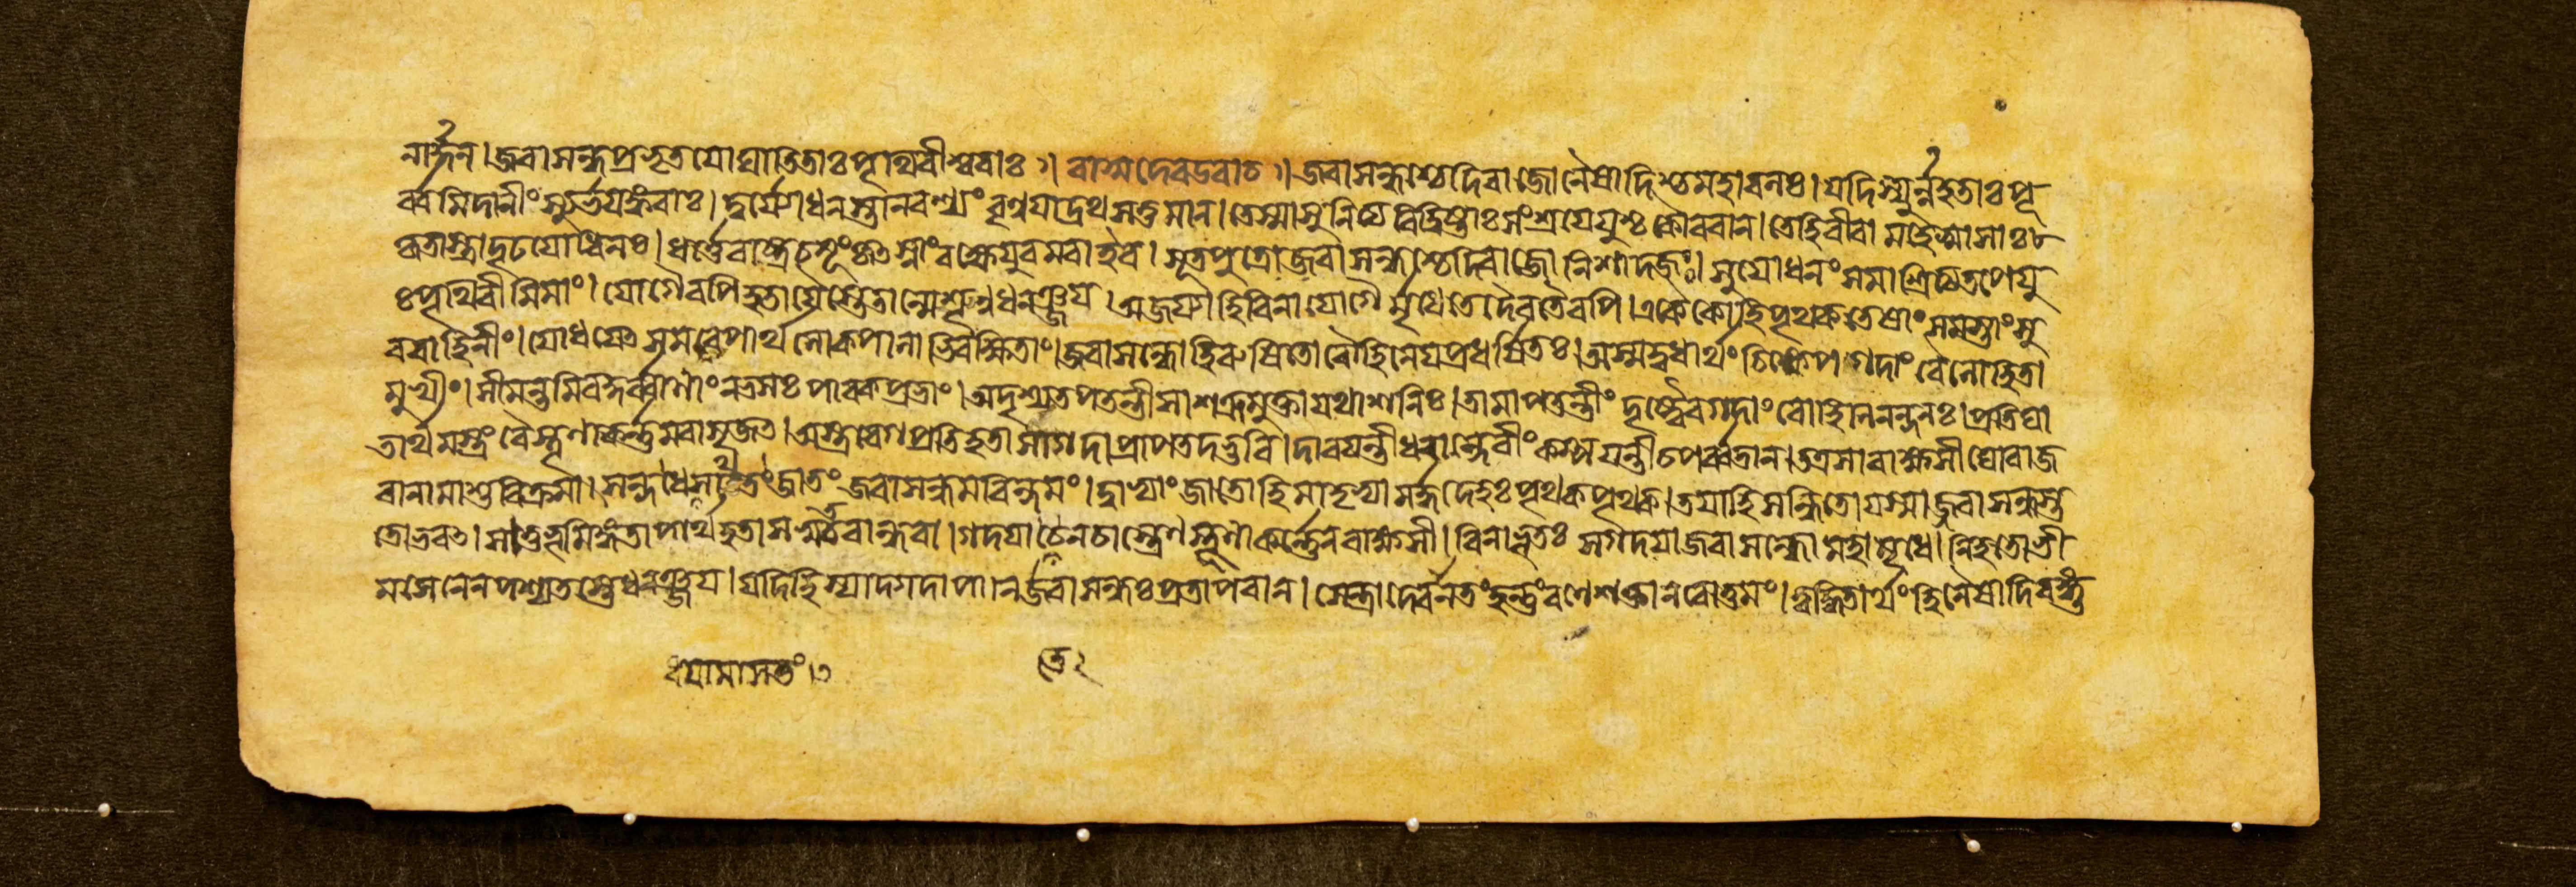 নার্দ্দন। জরাসন্ধপ্রভৃতয়ো ঘাতিতাঃ পৃথিবীশ্বরাঃ ॥ বাসুদেব উবাচ ॥ জরাসন্ধশ্চেদিরাজো নৈষাদিশ্চ মহাবলঃ। যদি স্যুর্ন্ন হতাঃ পূ
র্ব্বমিদানীং স্যুর্ভয়ঙ্করাঃ। দুর্যোধনস্তানবশ্যং বৃণুয়াদ্রথসত্তমান্। তেস্মাসু নিত্যবিদ্বিষ্টাঃ সংশ্রয়েয়ুশ্চ কৌরবান্। তে হি বীরা মহেষ্বাসাঃ
কৃতাস্ত্রা দৃঢয়োধিনঃ। ধার্ত্তরাষ্ট্রচমূং কৃৎস্নাং রক্ষেয়ুরমরা ইব। সূতপুত্রো জরাসন্ধশ্চেদিরাজো নিশাদজঃ। সুয়োধনং সমাশ্রিত্য তপেয়ু
ঃ পৃথিবীমিমাং। যোগৈরপি হতা যৈস্তে তান্মে শৃণু ধনঞ্জয়। অজয্যা হি বিনা যোগৈর্মৃধে তে দৈবতৈরপি। একৈকো হি পৃথক্ তেষাং সমস্তাং সু
রবাহিনীং। যোধয়েৎ সমরে পার্থ লোকপালাভিরক্ষিতাং। জরাসন্ধো হি রুষিতো রৌহিণেয়প্রধর্ষিতঃ। অস্মদ্বধার্থং চিক্ষেপ গদাং বৈ লোহিতা
মুখীং। সীমন্তমিব কুর্ব্বাণাং নভসঃ পাবকপ্রভাং। অদৃশ্যত পতন্তী সা শক্রমুক্তা যথাশনিঃ। তামাপতন্তীং দৃষ্ট্বৈব গদাং রোহিণনন্দনঃ। প্রতিঘা
তার্থমস্ত্রং বৈ স্থূণাকর্ণমবাসৃজৎ। অস্ত্রবেগপ্রতিহতা সা গদা প্রাপতদ্ভুবি। দারয়ন্তী ধরান্দেবীং কম্পয়ন্তী চ পর্ব্বতান্। তত্র সা রাক্ষসী ঘোরা জ
রানামাশুবিক্রমা। সন্দধে সা হি তং জাতং জরাসন্ধমরিন্দমং। দ্বাভ্যাং জাতো হি মাতৃভ্যামর্দ্ধদেহঃ পৃথক্ পৃথক্। তয়া হি সন্ধিতো যস্মাজ্জরাসন্ধস্ত
তোভবৎ। সা তু ভূমিঙ্গতা পার্থ হতা সসুতবান্ধবা। গদয়া তেন চাস্ত্রেণ স্থূণাকর্ণেন রাক্ষসী। বিনাভূতঃ স গদয়া জরাসন্ধো মহামৃধে। নিহতো ভী
মসেনেন পশ্যতস্তে ধনঞ্জয়। যদি হি স্যাদ্গদাপাণির্জ্জরাসন্ধঃ প্রতাপবান্। সেন্দ্রা দেবা ন তং হন্তুং রণে শক্তা নরোত্তমং। ত্বদ্ধিতার্থং হি নৈষাদিরঙ্গু